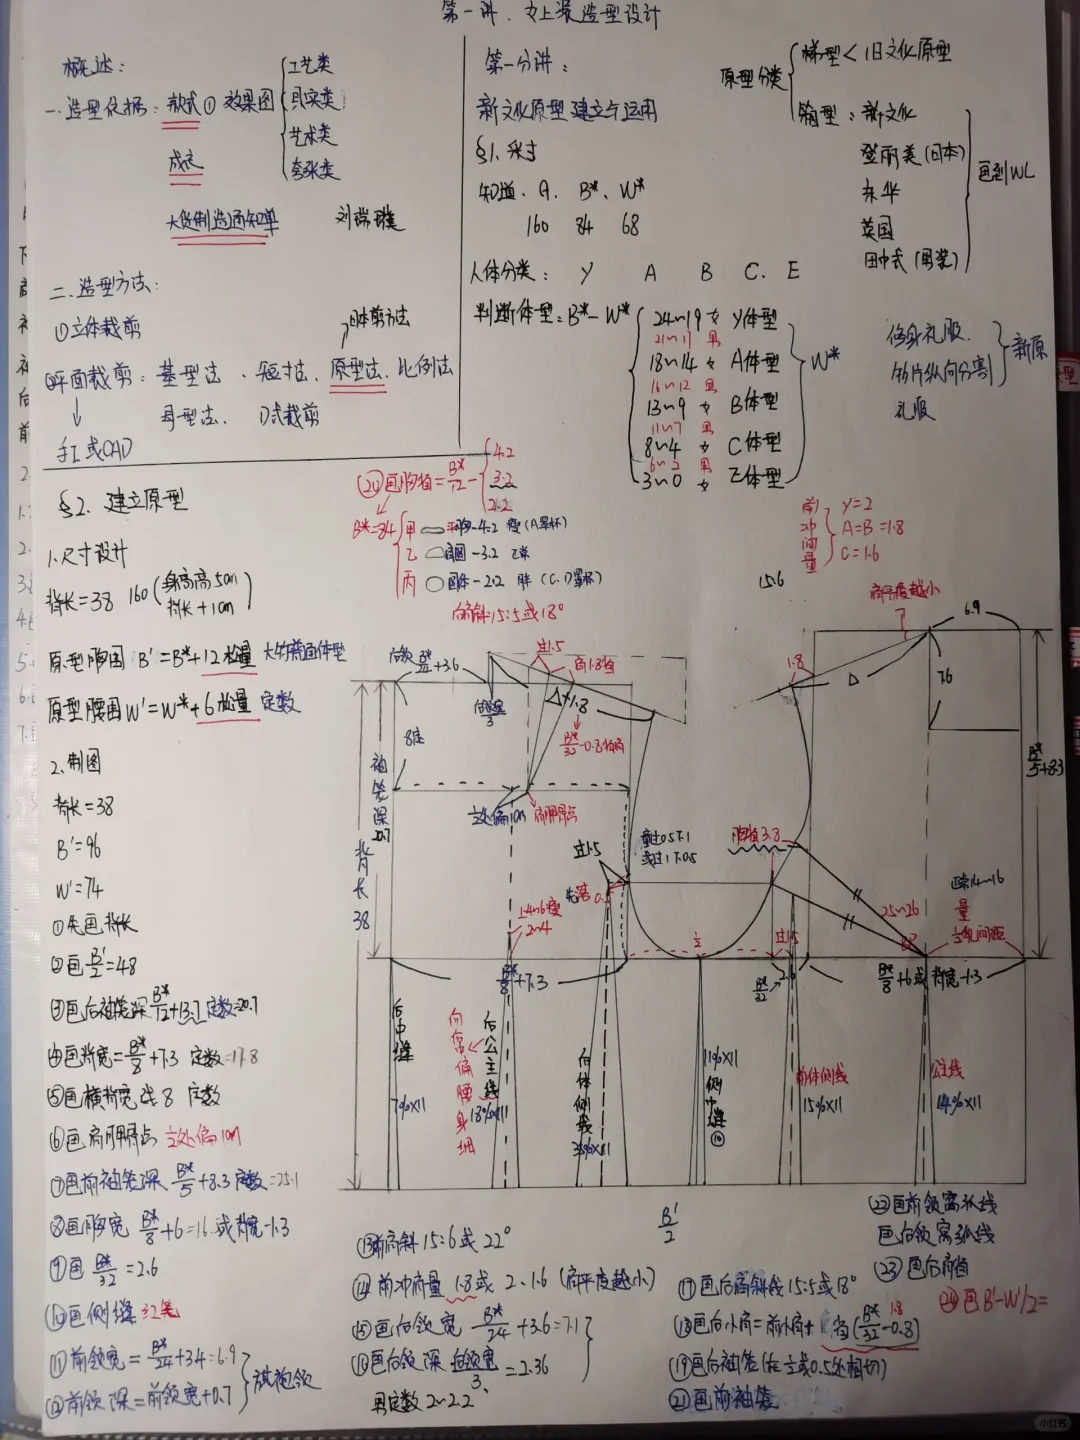 第一讲.女上装造型设计
概述:
一.造型依据:款式①效果图
工艺类
具实类
艺术类
夸张类
成衣
大货制造通知单 刘瑞璞
二.造型方法:
①立体裁剪
日本剪方法
②平面裁剪:基型法、短寸法、原型法、比例法
母型法、D式裁剪
手工或CAD
第一分讲:
新文化原型建立与运用
原型分类
梯型<旧文化原型
箱型:新文化
登丽美(日本)
东华
英国
田中式(男装)
画到WL
§1.尺寸
知道.A. B*、W*
160 84 68
人体分类: Y A B C. E
判断体型=B*-W*
24~19 女 Y体型
21~17 男
18~14 女 A体型
16~12 男
13~9 女 B体型
11~7 男
8~4 女 C体型
6~2 男
3~0 女 E体型
W*
修身礼服.
衣片纵向分割
礼服
新原
§2.建立原型
1.尺寸设计
背长=38 160(身高高5cm
背长+1cm)
原型胸围B'=B*+12松量
原型腰围W'=W*+6松量 定数
2.制图
背长=38
B'=96
W'=74
①先画背长
②画B'/2=48
③画后袖笼深B*/12+13.7定数=20.7
④画背宽=B*/8+7.3 定数=17.8
⑤画横背宽线8 定数
⑥画肩胛骨点 1/2处偏1cm
⑦画前袖笼深 B*/5+8.3定数=25.1
⑧画胸宽 B*/8+6=16.或背宽-1.3
⑨画B*/32=2.6
⑩画侧缝 红笔
⑪前领宽=B*/24+3.4=6.9
⑫前领深=前领宽+0.7
旗袍领
⑬前肩斜15:6或22°
⑭前冲肩量 1.8或2、1.6(肩平度越小)
⑮画后领宽 B*/24+3.6=7.1
⑯画后领深 后领宽/3=2.36
男定数2~2.2
⑰画后肩斜线15:5或18°
⑱画后小肩=前小肩+省(B*/32-0.8)
1.8
⑲画后袖笼(在1/2或0.5处相切)
㉑画前袖笼
㉒画前领窝弧线
画后领窝弧线
㉓画后肩省
㉔画B'-W'/2=
⑳画胸省=B*/12-
4.2
3.2
2.2
B*=84
甲 平胸-4.2 瘦(A罩杯)
乙 扁圆-3.2 正常
丙 圆体-2.2 胖(C.D罩杯)
后肩斜15:5或18°
前冲肩量
Y=2
A=B=1.8
C=1.6
15:6
肩平度越小
6.9
1.8
△
7.6
B*/5+8.3
后领B*/24+3.6
后领宽/3
过1.5
肩1.8省
△+1.8
B*/32-0.8肩省
8定
袖笼深20.7
背长38
1/2处偏1cm
肩胛骨点
过1.5
量过0.5下.1
或过1下0.5
胸省3.8
25~26
BP
正常14~16
量
1/2乳间距
1/2
过1.5
B*/8+7.3
B*/32
2.6
B*/8+6或背宽-1.3
后中缝
7%×11
后公主线
18%×11
向后偏腰身细
后体侧线
35%×11
11%×11
侧中缝⑩
前体侧线
15%×11
公主线
14%×11
B'/2
小红书